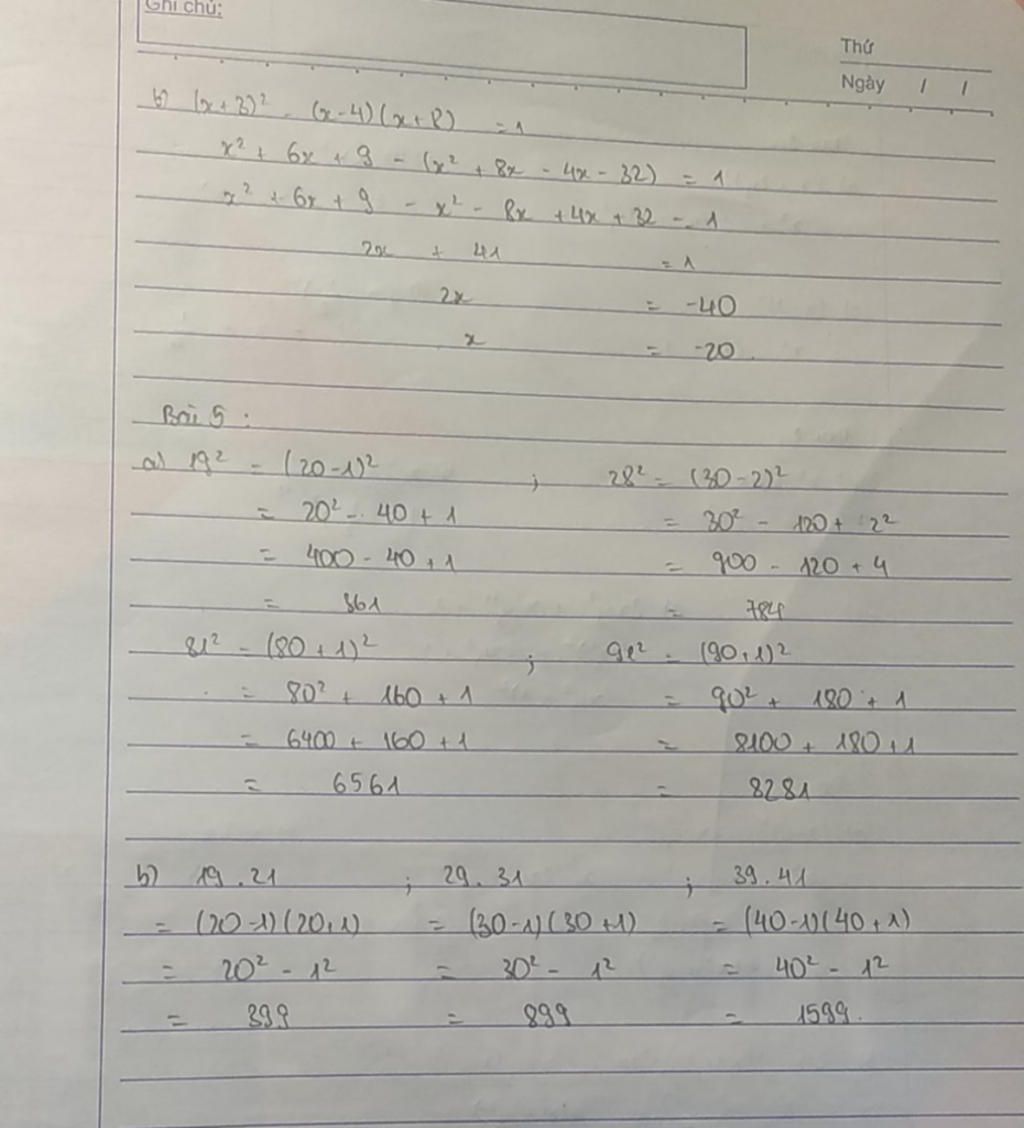 Ghi chú:
Thứ
Ngày / /
b) (x+3)² - (x-4)(x+8) = 1
x² + 6x + 9 - (x² + 8x - 4x - 32) = 1
x² + 6x + 9 - x² - 8x + 4x + 32 = 1
2x + 41 = 1
2x = -40
x = -20.
Bài 5 :
a) 19² = (20-1)² ; 28² = (30-2)²
= 20² - 40 + 1 = 30² - 120 + 2²
= 400 - 40 + 1 = 900 - 120 + 4
= 361 = 784
81² = (80+1)² ; 91² = (90+1)²
= 80² + 160 + 1 = 90² + 180 + 1
= 6400 + 160 + 1 = 8100 + 180 + 1
= 6561 = 8281
b) 19.21 ; 29.31 ; 39.41
= (20-1)(20+1) = (30-1)(30+1) = (40-1)(40+1)
= 20² - 1² = 30² - 1² = 40² - 1²
= 399 = 899 = 1599.